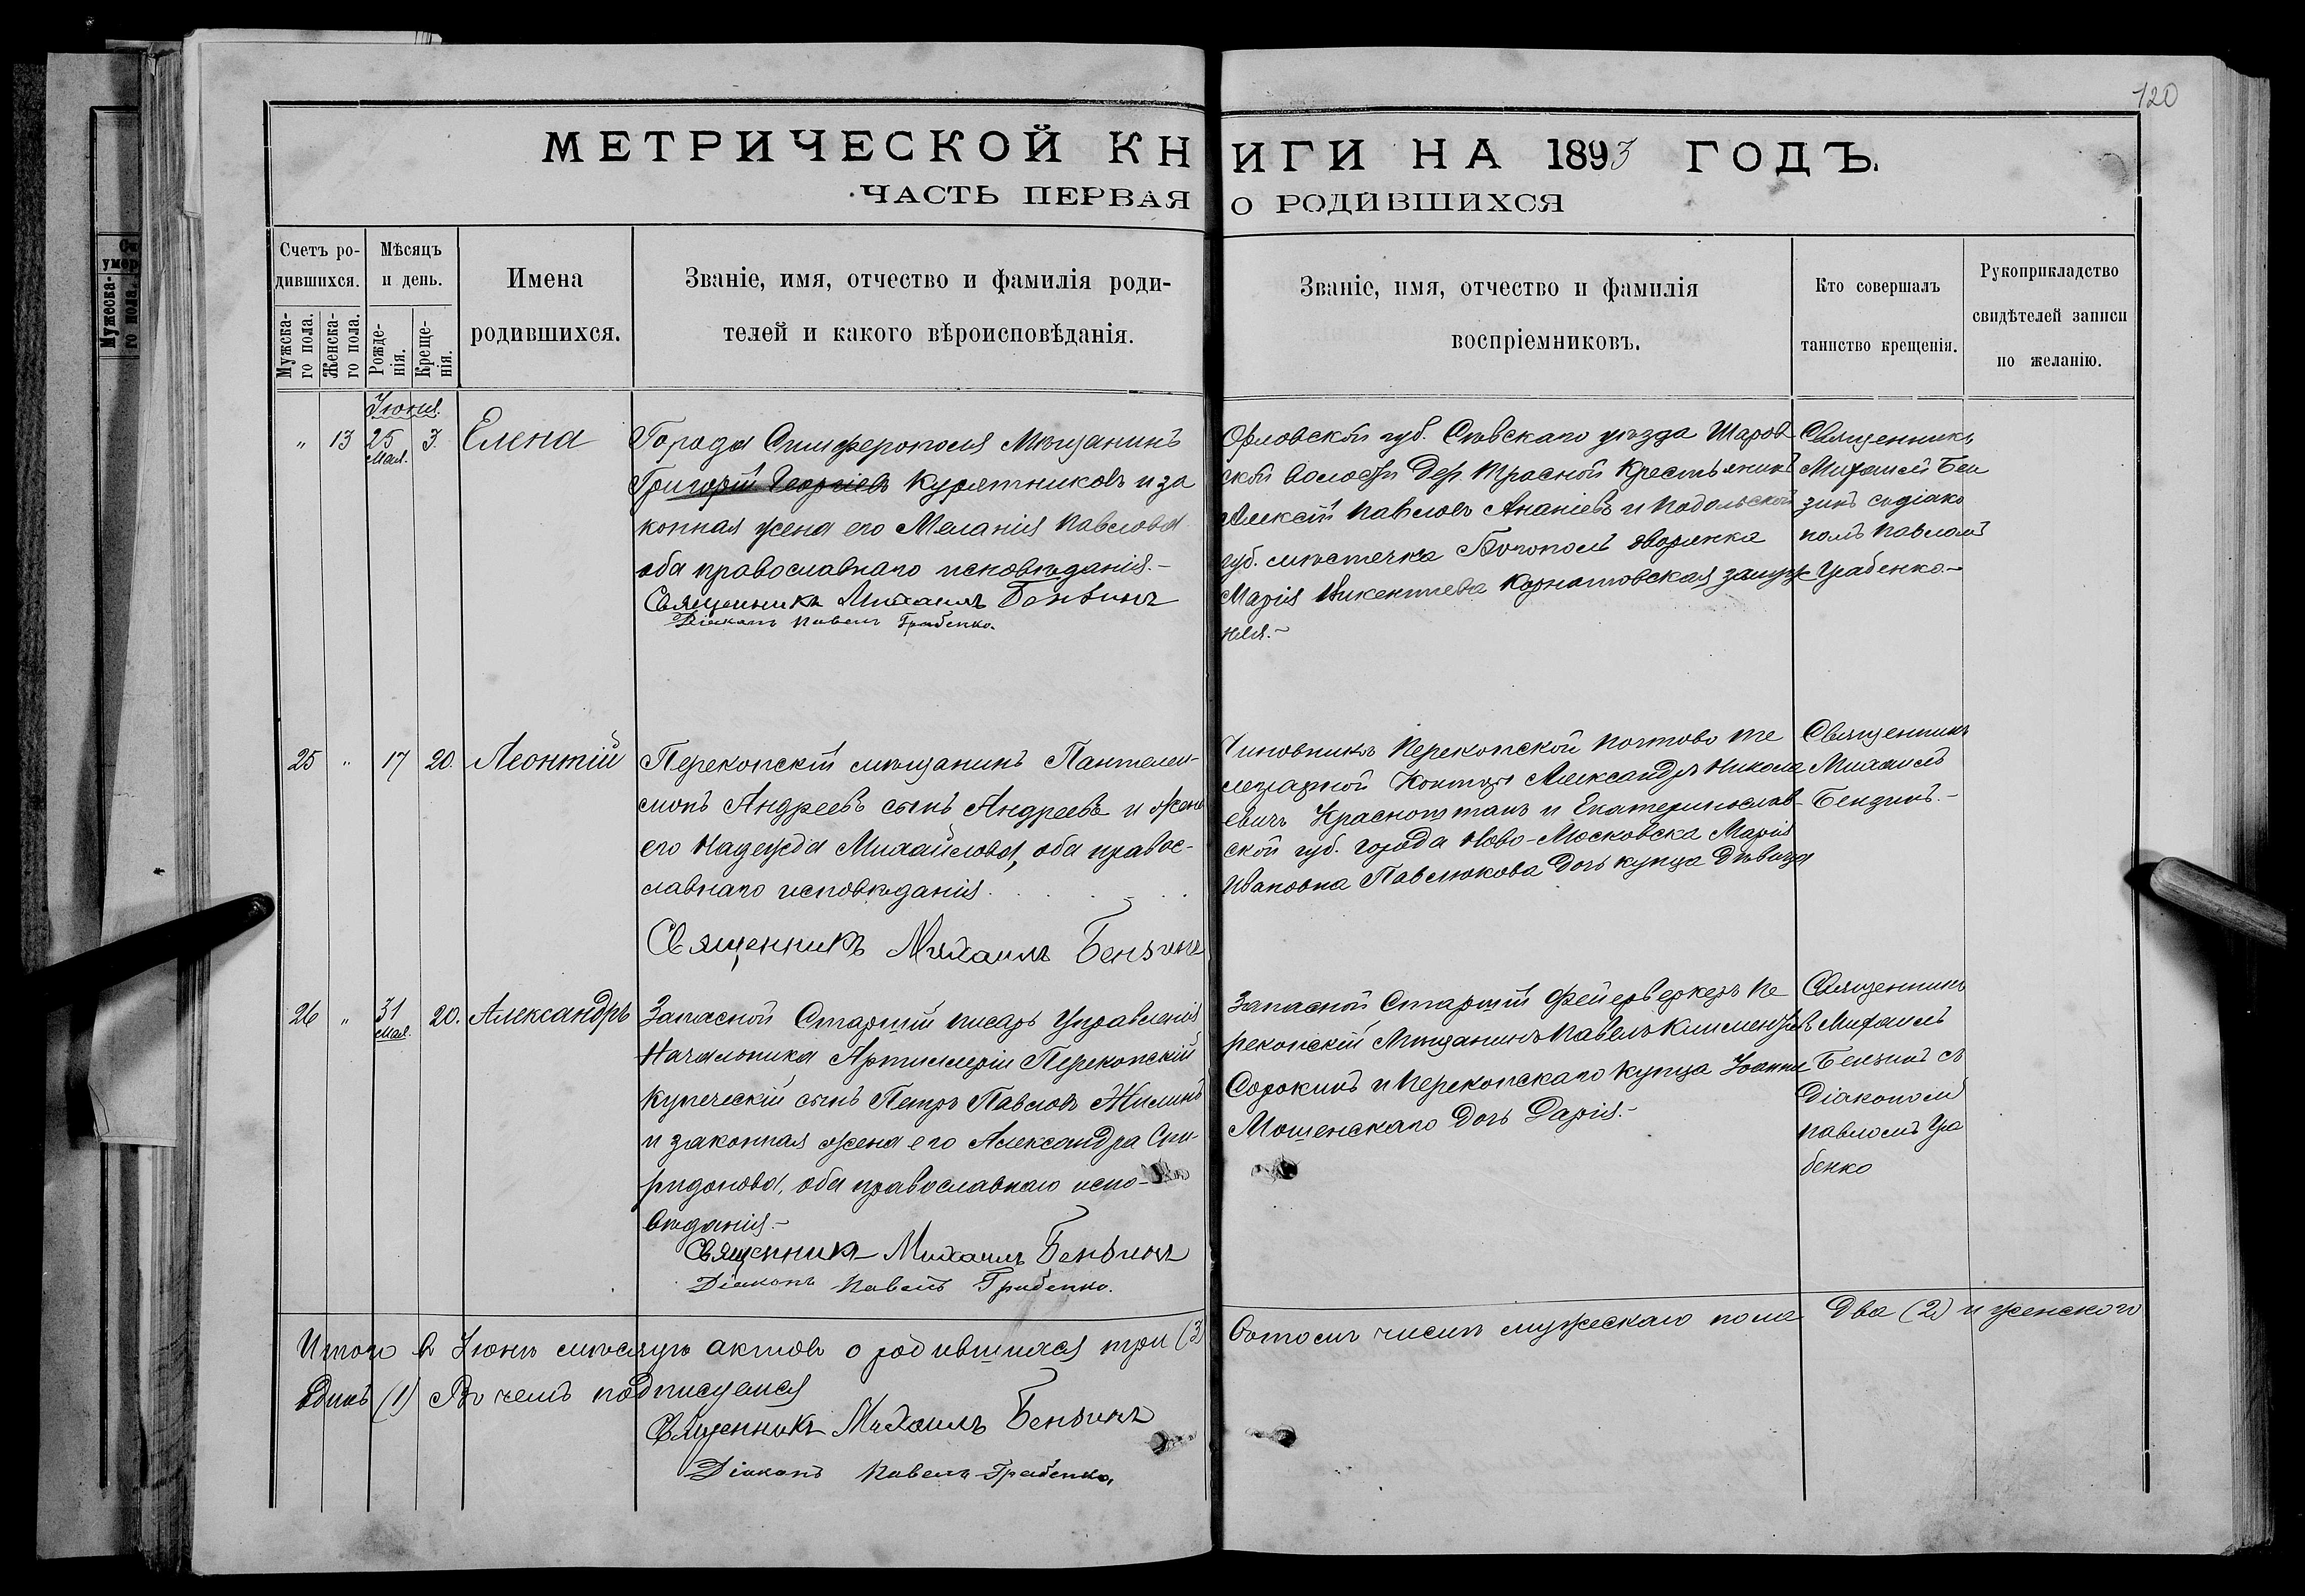 120
МЕТРИЧЕСКОЙ КНИГИ НА 1893 ГОДЪ.
ЧАСТЬ ПЕРВАЯ О РОДИВШИХСЯ
Счетъ ро-
дившихся.
Мужска-
го пола.
Женска-
го пола.
Мѣсяцъ
и день.
Рожде-
нія.
Креще-
нія.
Имена
родившихся.
Званіе, имя, отчество и фамилія роди-
телей и какого вѣроисповѣданія.
Званіе, имя, отчество и фамилія
воспріемниковъ.
Кто совершалъ
таинство крещенія.
Рукоприкладство
свидѣтелей записи
по желанію.
Іюня.
„ 13 25 Мая. 3. Елена
Города Симферополя Мѣщанинъ
Григорій Георгіевъ Курятниковъ и за
конная жена его Меланія Павлова
оба православнаго исповѣданія.-
Священникъ Михаилъ Бензинъ
Діаконъ Павелъ Грабенко.
Орловской губ. Сѣвскаго уѣзда Шаров
ской волости Дер. Красной Крестьянинъ
Алексѣй Павловъ Ананіевъ и Подольской
губ. мѣстечка Богополь дворянка
Марія Викентиева Корнатовская замуж
няя.-
Священникъ
Михаилъ Бен
зинъ съ діако
номъ Павломъ
Грабенко.-
25 „ 17 20. Леонтій
Перекопскій мѣщанинъ Пантелеи-
монъ Андреевъ сынъ Андреевъ и жена
его Надежда Михайлова, оба правос-
лавнаго исповѣданія.
Священникъ Михаилъ Бензинъ
Чиновникъ Перекопской Почтово те
леграфной Конторы Александръ Никола
евичъ и Екатеринослав-
ской губ. города Ново-Московска Марія
Ивановна Павлюкова Дочь купца Дѣвица
Священникъ
Михаилъ
Бензинъ.-
26 „ 31 Мая. 20. Александръ
Запасной Старшій писарь Управленія
Начальника Артиллеріи Перекопскій
Купеческій сынъ Петръ Павловъ Жилинъ
и законная жена его Александра Спи-
ридонова, оба православнаго испо-
вѣданія.-
Священникъ Михаилъ Бензинъ
Діаконъ Павелъ Грабенко.
Запасной Старшій Фейерверкеръ Пе
рекопскій Мѣщанинъ Павелъ Климентьевъ
Сорокинъ и Перекопскаго Купца Іоанна
Мошенскаго Дочь Дарія.-
Священникъ
Михаилъ
Бензинъ съ
Діакономъ
Павломъ Гра
бенко
Итого въ Іюнѣ мѣсяцѣ актовъ о родившихся три (3) Вътомъ числѣ мужескаго пола Два (2) и женскаго
Одинъ (1) Въ чемъ подписуемся
Священникъ Михаилъ Бензинъ
Діаконъ Павелъ Грабенко.